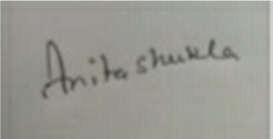 Anita shukla